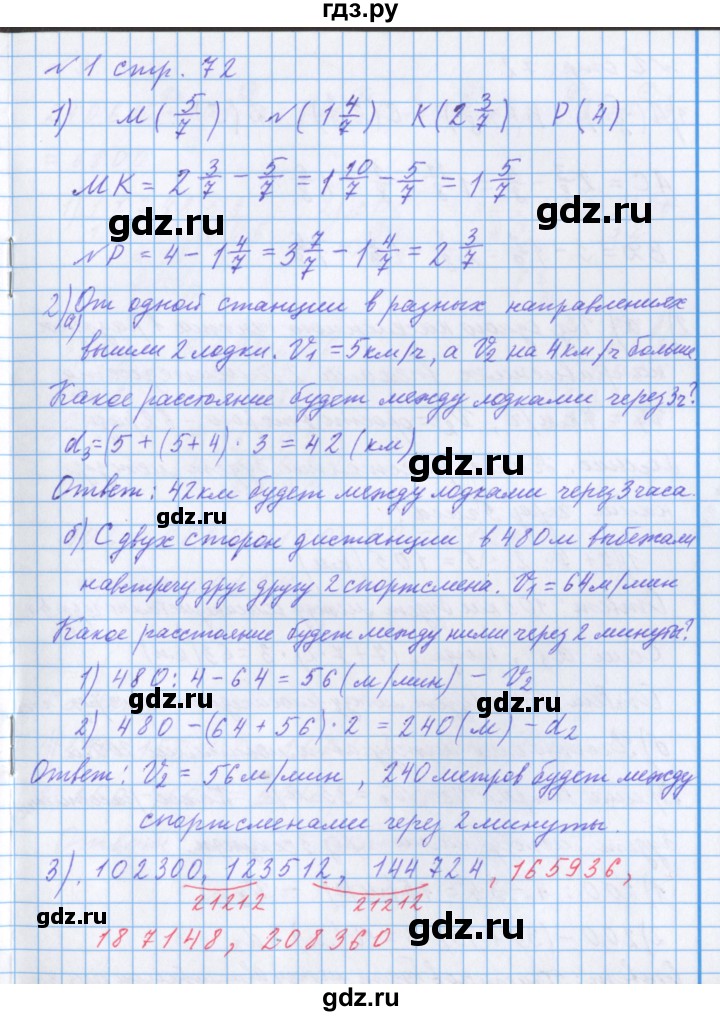 гдз.ру
№1 стр. 72
1) M(5/7) N(1 4/7) K(2 3/7) P(4)
MK = 2 3/7 - 5/7 = 1 10/7 - 5/7 = 1 5/7
gdz.ru gdz.ru
NP = 4 - 1 4/7 = 3 7/7 - 1 4/7 = 2 3/7
2) а) От одной станции в разных направлениях
вышли 2 лодки. V1 = 5км/ч, а V2 на 4км/ч больше.
Какое расстояние будет между лодками через 3ч?
d3=(5+(5+4)·3 = 42 (км)
gdz.ru
Ответ: 42км будет между лодками через 3 часа.
gdz.ru
б) С двух сторон дистанции в 480м выбежали
навстречу друг другу 2 спортсмена. V1=64м/мин
Какое расстояние будет между ними через 2 минуты?
1) 480:4-64=56(м/мин) - V2
gdz.ru gdz.ru
2) 480-(64+56)·2=240(м)-d2
Ответ: V2=56м/мин, 240метров будет между
спортсменами через 2 минуты.
3). 102300, 123512, 144724, 165936,
gdz.ru 21212 21212
187148, 208360
gdz.ru
gdz.ru